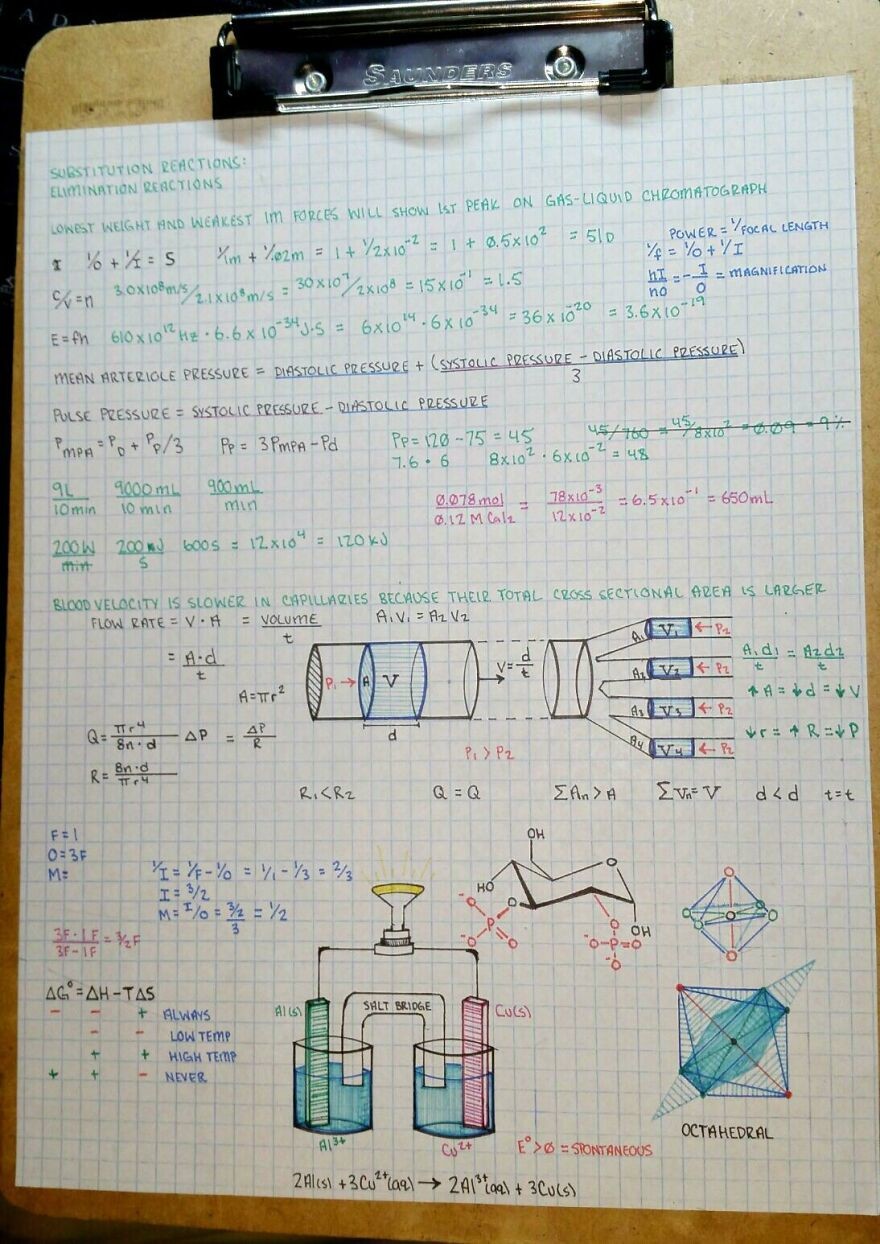 SAUNDERS
SUBSTITUTION REACTIONS:
ELIMINATION REACTIONS
LOWEST WEIGHT AND WEAKEST IM FORCES WILL SHOW 1ST PEAK ON GAS-LIQUID CHROMATOGRAPH
I 1/O + 1/I = S 1/1m + 1/.02m = 1 + 1/2x10⁻² = 1 + Ø.5x10² = 51D
POWER = 1/FOCAL LENGTH
1/f = 1/O + 1/I
hI/hO = -I/O = MAGNIFICATION
C/V = n 3.0x10⁸m/s/2.1x10⁸m/s = 30x10⁷/2x10⁸ = 15x10⁻¹ = 1.5
E = fh 610x10¹²Hz · 6.6x10⁻³⁴J·S = 6x10¹⁴ · 6x10⁻³⁴ = 36x10⁻²⁰ = 3.6x10⁻¹⁹
MEAN ARTERIOLE PRESSURE = DIASTOLIC PRESSURE + (SYSTOLIC PRESSURE - DIASTOLIC PRESSURE)/3
PULSE PRESSURE = SYSTOLIC PRESSURE - DIASTOLIC PRESSURE
PMPA = PD + PP/3 PP = 3PMPA - Pd PP = 120 - 75 = 45 45/760 = 45/8x10² = 0.09 = 9%
7.6 · 6 8x10² · 6x10⁻² = 48
9L/10min 9000mL/10min 900mL/min
Ø.078mol/Ø.12 M CaI2 = 78x10⁻³/12x10⁻² = 6.5x10⁻¹ = 650mL
200W/min 200J/S 600S = 12x10⁴ = 120kJ
BLOOD VELOCITY IS SLOWER IN CAPILLARIES BECAUSE THEIR TOTAL CROSS SECTIONAL AREA IS LARGER
FLOW RATE = V · A = VOLUME/t A₁V₁ = A₂V₂
= A·d/t
A = πr²
P₁ → A V d
V = d/t
A₁ V₁ ← P₂
A₂ V₂ ← P₂
A₃ V₃ ← P₂
A₄ V₄ ← P₂
A₁d₁/t = A₂d₂/t
↑A = ↓d = ↓V
↓r = ↑R = ↓P
Q = πr⁴/8n·d ΔP = ΔP/R
R = 8n·d/πr⁴
P₁ > P₂
R₁ < R₂ Q = Q ΣAn > A ΣVn = V d < d t = t
F = 1
O = 3F
M =
1/I = 1/F - 1/O = 1/1 - 1/3 = 2/3
I = 3/2
M = I/O = 3/2/3 = 1/2
3F·1F/3F-1F = 3/2F
OH
HO
O
O
OH
O⁻
P
O
O⁻
O
⁻O-P=O
O
⁻
ΔG° = ΔH - TΔS
- - + ALWAYS
- - LOW TEMP
+ + HIGH TEMP
+ + - NEVER
Al(s)
SALT BRIDGE
Cu(s)
Al³⁺
Cu²⁺
E° > Ø = SPONTANEOUS
OCTAHEDRAL
2Al(s) + 3Cu²⁺(aq) → 2Al³⁺(aq) + 3Cu(s)